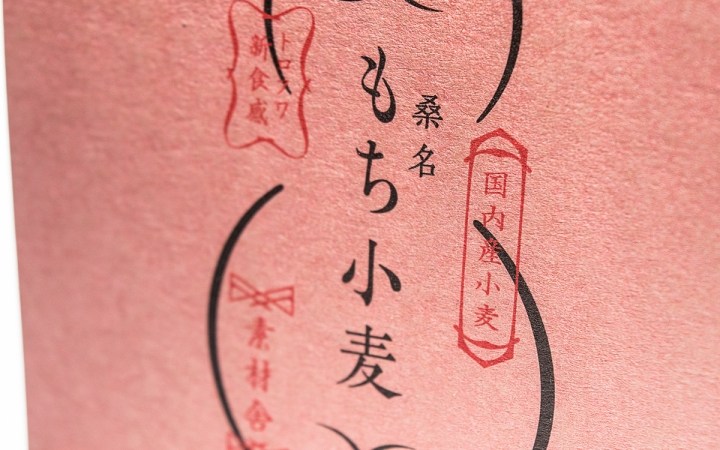 桑名
もち小麦
国内産小麦
トロフワ
新食感
素材舎